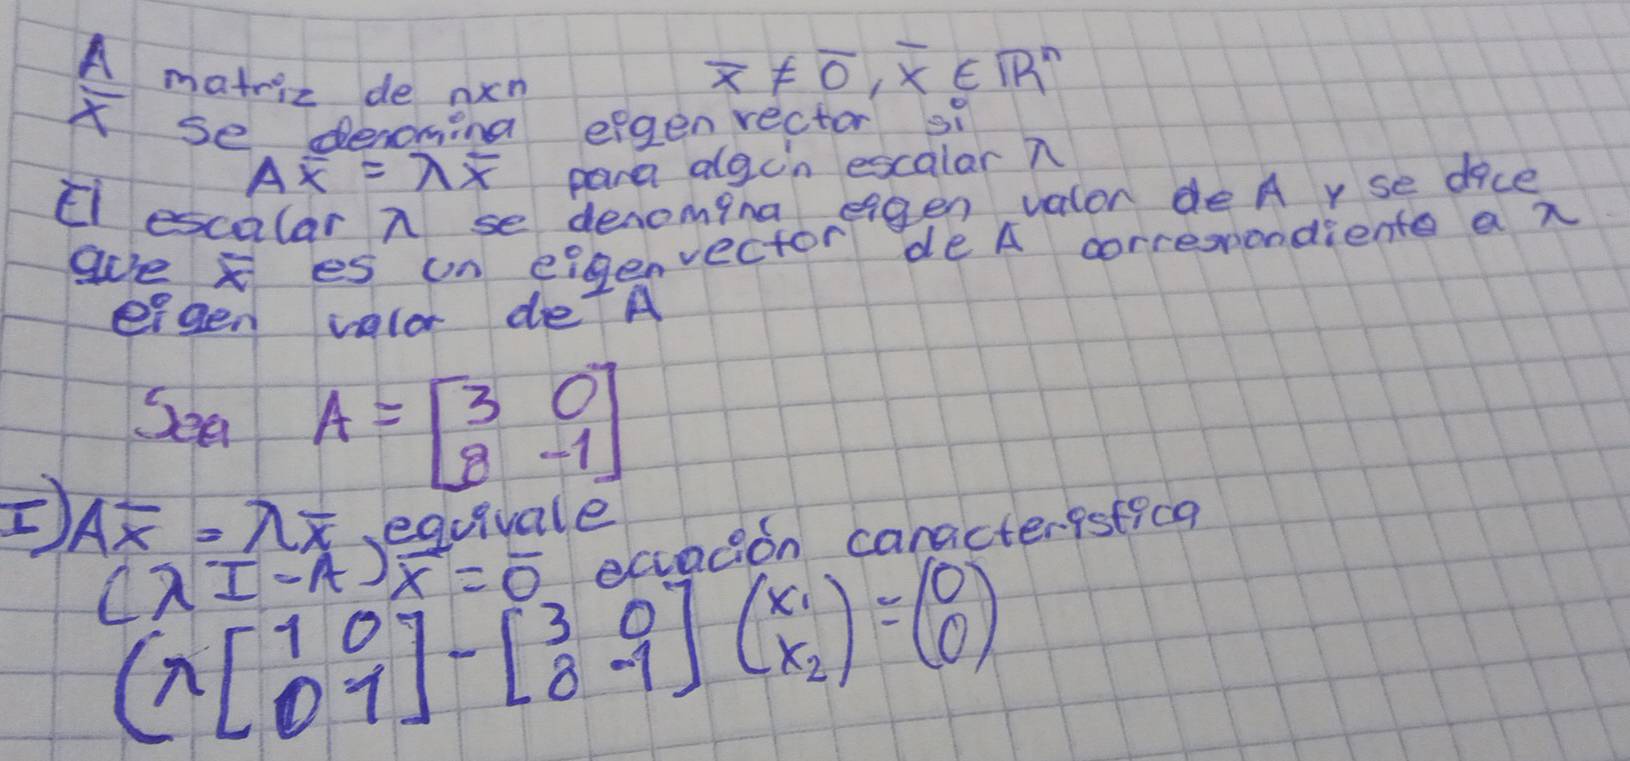 A matriz de nxn x̄ ≠ 0̄, x̄ ∈ ℝⁿ
x̄ se denomina eigen vector si
Ax̄ = λx̄ para algún escalar λ
El escalar λ se denomina eigen valor de A y se dice
que x̄ es un eigen vector de A correspondiente a λ
eigen valor de A
Sea A = [3 0
8 -1]
I) Ax̄ = λx̄ equivale
(λI - A)x̄ = 0̄ ecuación característica
(λ[1 0
0 1] - [3 0
8 -1] (x₁
x₂) = (0
0)